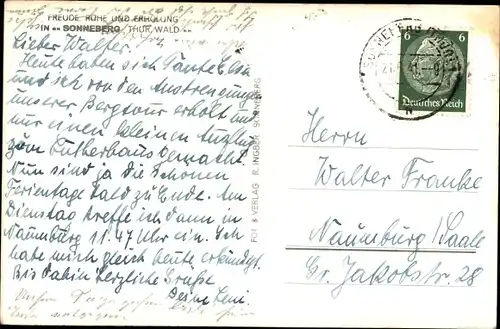 FREUDE, RUHE UND ERHOLUNG
IN SONNEBERG THÜR. WALD
Lieber Walter!
Heute haben sich Tante
und ich von den Anstrengungen
unserer Bergtour erholt und
nur einen kleinen Ausflug
zum Lutherhaus gemacht.
Nun sind ja die schönen
Ferientage bald zu Ende. Am
Dienstag treffe ich dann in
Naumburg 11.47 Uhr ein. Ich
habe mich gleich heute erkundigt.
Bis dahin herzliche Grüße
Deine Leni.
VERLAG R. INGBER SONNEBERG
SONNEBERG
6 6
Deutsches Reich
Herrn
Walter Franke
Naumburg/Saale
Gr. Jakobstr. 28